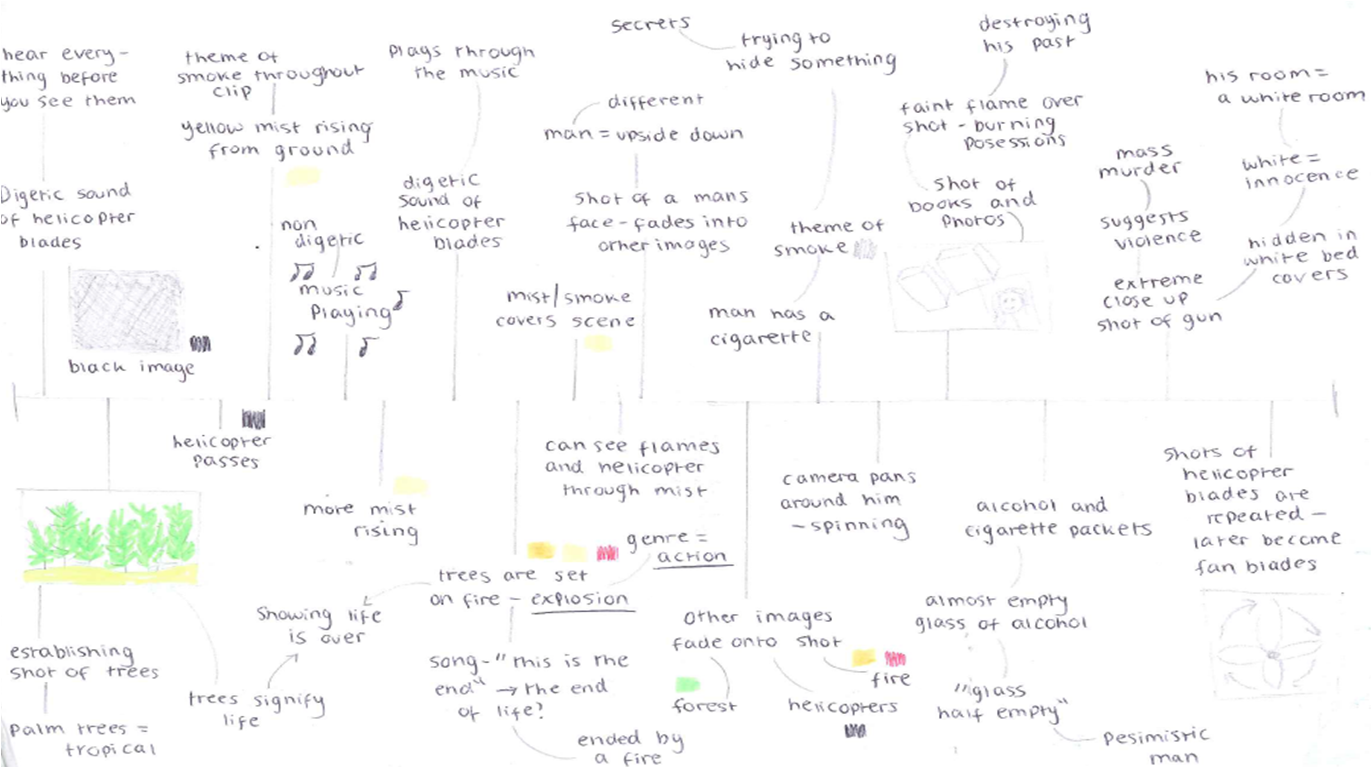 hear every-
thing before
you see them
Digetic sound
of helicopter
blades
black image
theme of
smoke throughout
clip
yellow mist rising
from ground
non
digetic
music
playing
plays through
the music
digetic
sound of
helicopter
blades
mist/smoke
covers scene
secrets
trying to
hide something
different
man = upside down
shot of a mans
face - fades into
other images
theme of
smoke
man has a
cigarette
destroying
his past
faint flame over
shot - burning
posessions
shot of
books and
photos
mass
murder
suggests
violence
extreme
close up
shot of gun
his room =
a white room
white =
innocence
hidden in
white bed
covers
helicopter
passes
establishing
shot of trees
palm trees =
tropical
trees signify
life
showing life
is over
more mist
rising
can see flames
and helicopter
through mist
genre =
action
trees are set
on fire - explosion
song - "this is the
end" → the end
of life?
ended by
a fire
other images
fade onto shot
forest
helicopters
fire
camera pans
around him
- spinning
alcohol and
cigarette packets
almost empty
glass of alcohol
"glass
half empty"
pesimistic
man
shots of
helicopter
blades are
repeated -
later become
fan blades